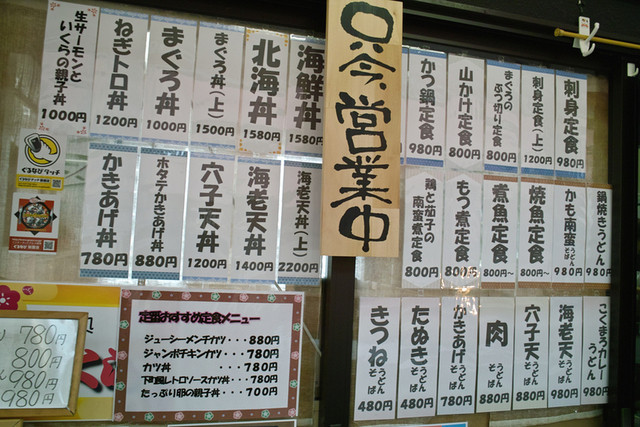 只今営業中
海鮮丼
1580円
北海丼
1580円
まぐろ丼(上)
1500円
まぐろ丼
1000円
ねぎトロ丼
1200円
生サーモンと
いくらの親子丼
1000円
海老天丼(上)
2200円
海老天丼
1400円
穴子天丼
1200円
ホタテかきあげ丼
880円
かきあげ丼
780円
ぐるなびタッチ
刺身定食
980円
刺身定食(上)
1200円
まぐろの
ぶつ切り定食
800円
山かけ定食
800円
かつ鍋定食
980円
鍋焼きうどん
980円
かも南蛮
うどん
そば
980円
焼魚定食
800円~
煮魚定食
800円~
もつ煮定食
800円
鶏と茄子の
南蛮煮定食
800円
こくまろカレー
うどん
980円
海老天
うどん
そば
980円
穴子天
うどん
そば
880円
肉
うどん
そば
880円
かきあげ
うどん
そば
780円
たぬき
うどん
そば
480円
きつね
うどん
そば
480円
定番おすすめ定食メニュー
ジューシーメンチカツ・・・880円
ジャンボチキンカツ・・・780円
カツ丼・・・780円
下町風レトロソースカツ丼・・・780円
たっぷり卵の親子丼・・・700円
780円
800円
980円
980円